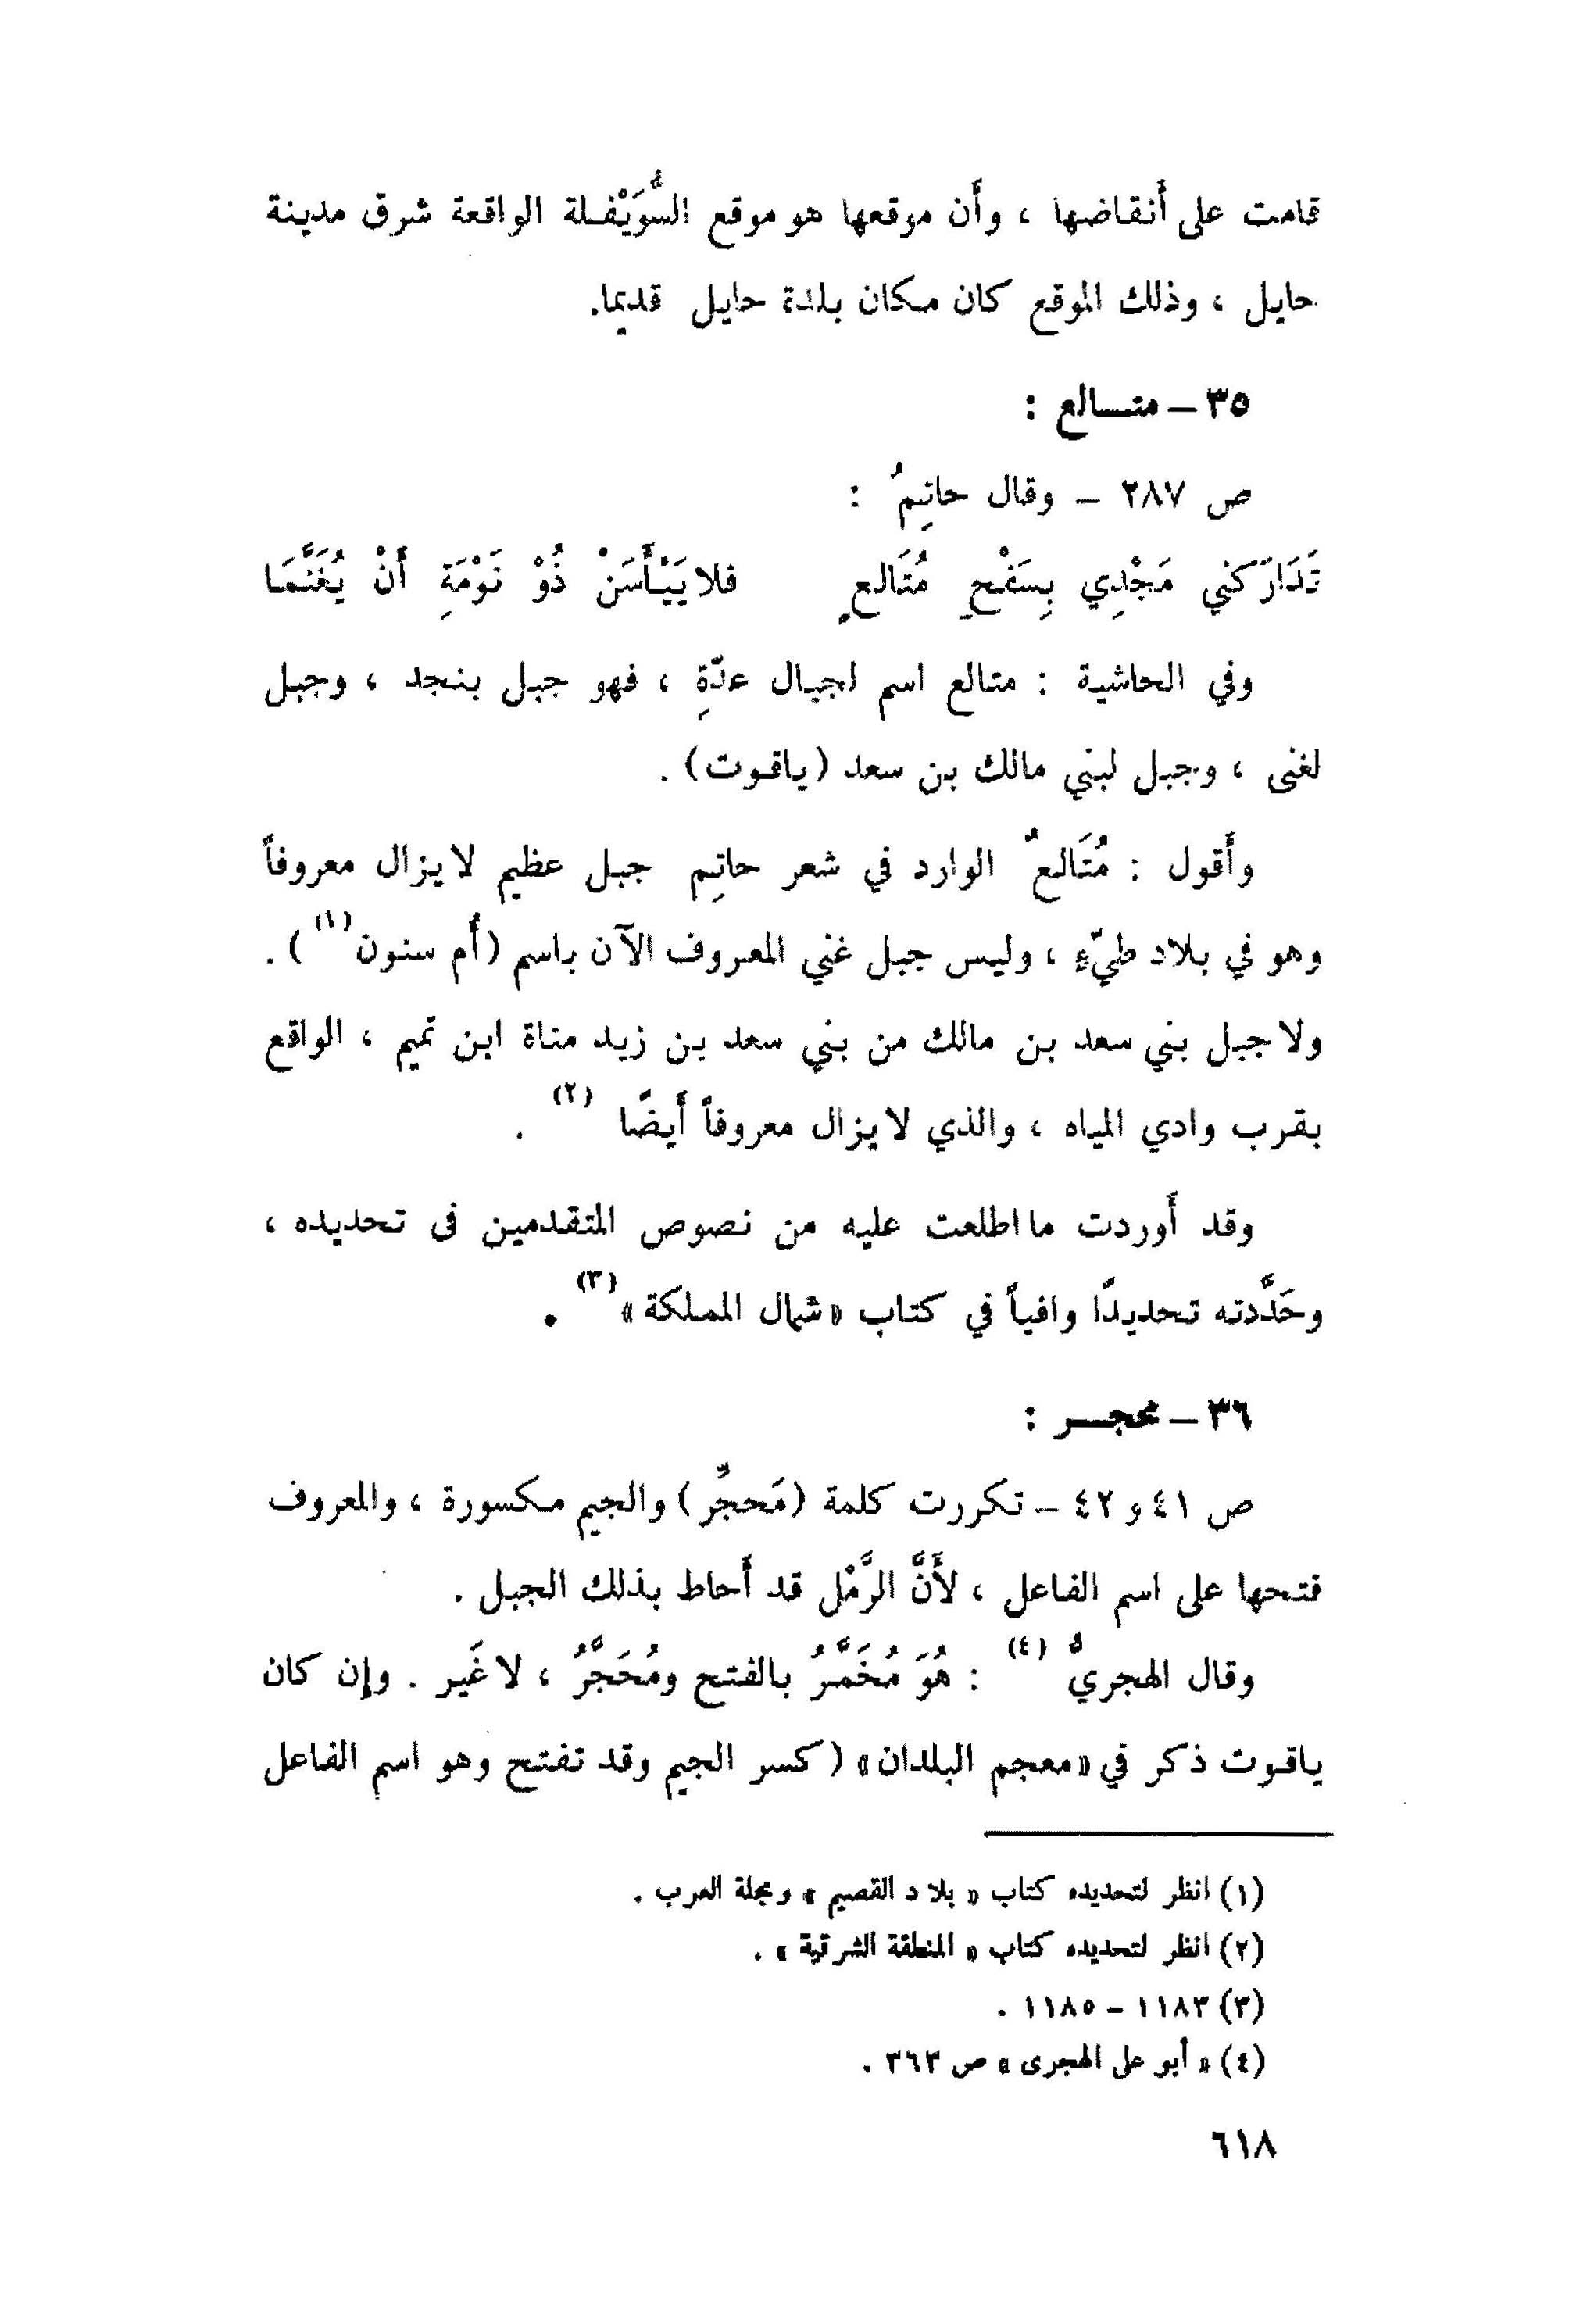 قامت على أنقاضها ، وأن موقعها هو موقع السُّوَيْفلة الواقعة شرق مدينة
حايل ، وذلك الموقع كان مكان بلدة حايل قديما.
٣٥ – متالع :
ص ٢٨٧ – وقال حاتِمُ :
تَدَارَكني مَجْدِي بِسَفْحِ مُتَالعٍ فلا يَيْأَسَنْ ذُوْ نَوْمَةِ أَنْ يُغَنَّمَا
وفي الحاشية : متالع اسم لجبال عدّةِ ، فهو جبل بنجد ، وجبل
لغنى ، وجبل لبني مالك بن سعد (ياقوت) .
وأقول : مُتَالعٌ الوارد في شعر حاتِم جبل عظيم لا يزال معروفاً
وهو في بلاد طيّءٍ ، وليس جبل غني المعروف الآن باسم (أم سنون(١) ) .
ولا جبل بني سعد بن مالك من بني سعد بن زيد مناة ابن تميم ، الواقع
بقرب وادي المياه ، والذي لا يزال معروفاً أيضًا (٢) .
وقد أوردت ما اطلعت عليه من نصوص المتقدمين فى تحديده ،
وحَدَّدته تحديدًا وافياً في كتاب «شمال المملكة» (٣) .
٣٦ – محجر :
ص ٤١ و ٤٢ – تكررت كلمة (مَحجِّر) والجيم مكسورة ، والمعروف
فتحها على اسم الفاعل ، لأَنَّ الرَّمْل قد أحاط بذلك الجبل .
وقال الهجريُّ (٤) : هُوَ مُخَمَّرُ بالفتح ومُحَجَّرُ ، لا غَير . وإن كان
ياقوت ذكر في «معجم البلدان» (كسر الجيم وقد تفتح وهو اسم الفاعل
(١) انظر لتحديده كتاب « بلاد القصيم » ومجلة العرب .
(٢) انظر لتحديده كتاب « المنطقة الشرقية » .
(٣) ١١٨٣ – ١١٨٥ .
(٤) « أبو على الهجرى » ص ٣٦٣ .
٦١٨